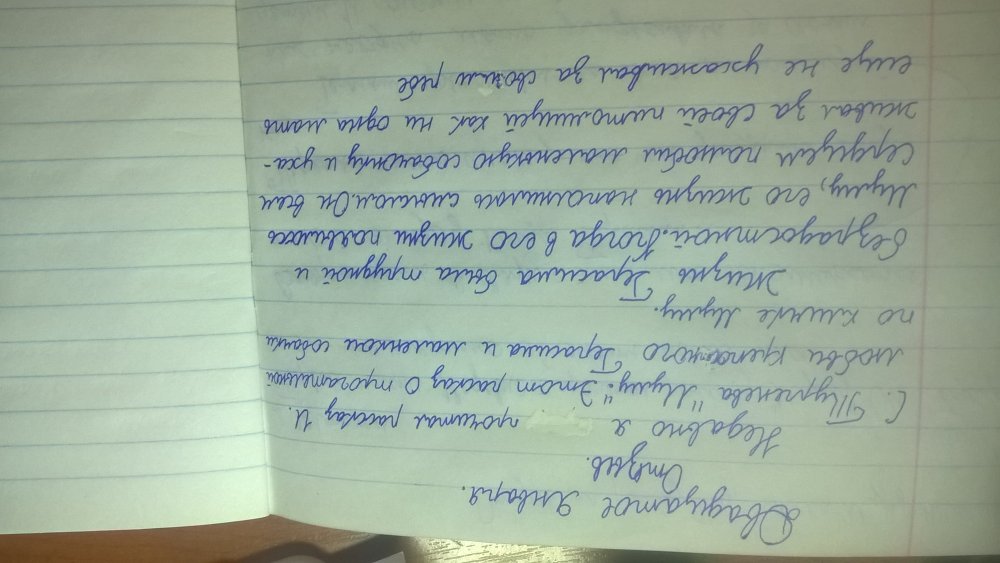 Двадцатое Января.
Отзыв.
Недавно я прочитал рассказ И.
С. Тургенева "Муму". Этот расказ о трогательной
любви крепосного Герасима и маленкой собачки
по кличке Муму.
Жизнь Герасима была трудной и
безрадостной. Когда в его жизни появилось
Муму, его жизнь наполнилось смыслом. Он всем
сердцем полюбил маленькую собачонку и уха-
живал за своей питомицей как ни одна мать
еще не ухаживал за своим ребе